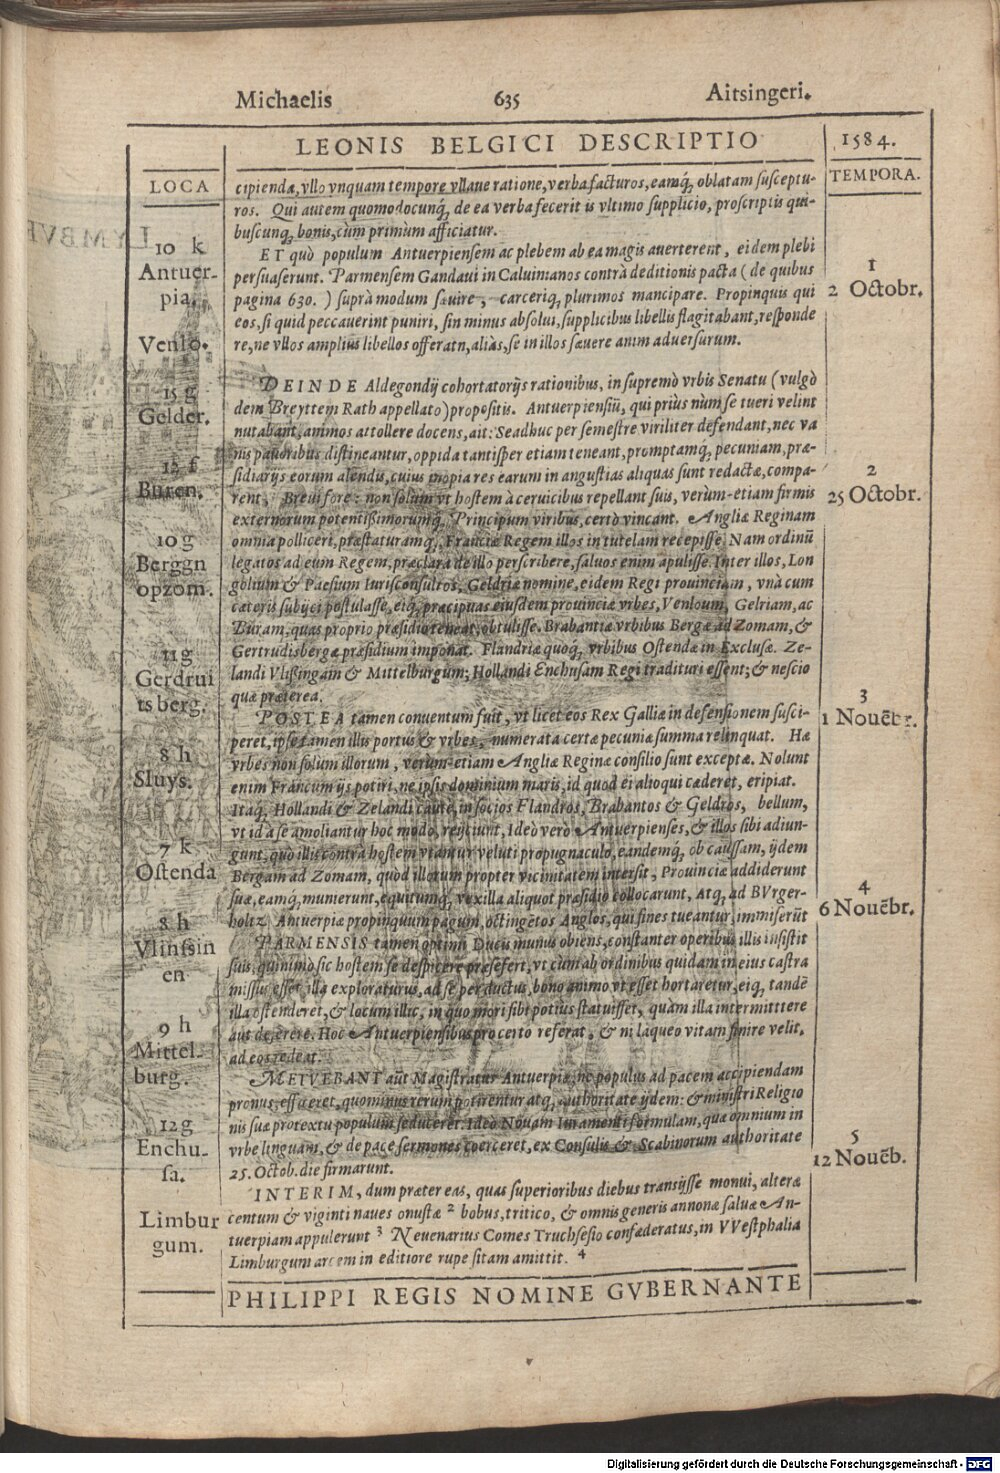 Michaelis 635 Aitsingeri.
LEONIS BELGICI DESCRIPTIO
1584.
LOCA
TEMPORA.
10 k
Antuer-
pia.
Venlo.
15 g
Gelder.
12 f
Buren.
10 g
Berggn
opzom.
11 g
Gerdrui
tsberg.
8 h
Sluys.
7 k
Ostenda
8 h
Vlinssin
en
9 h
Mittel-
burg.
12 g
Enchu-
sa.
Limbur
gum.
cipiendæ, vllo vnquam tempore vllaue ratione, verba facturos, eamq́, oblatam susceptu-
ros. Qui autem quomodocunq́, de ea verba fecerit is vltimo supplicio, proscriptis qui-
buscunq́, bonis, cùm primùm afficiatur.
ET quò populum Antuerpiensem ac plebem ab ea magis auerterent, eidem plebi
persuaserunt. Parmensem Gandaui in Caluinianos contrà deditionis pacta (de quibus
pagina 630.) suprà modum sæuire, carceriq́, plurimos mancipare. Propinquis qui
eos, si quid peccauerint puniri, sin minus absolui, supplicibus libellis flagitabant, responde
re, ne vllos amplius libellos offeratn, aliàs, se in illos sæuere anim aduersurum.
DEINDE Aldegondij cohortatorijs rationibus, in supremò vrbis Senatu (vulgò
dem Breyttem Rath appellato) propositis. Antuerpiensiū, qui priùs nùm se tueri velint
nutabant, animos attollere docens, ait: Se adhuc per semestre viriliter defendant, nec va
nis pauoribus distineantur, oppida tantisper etiam teneant, promptamq́, pecuniam, præ-
sidiarijs eorum alendis, cuius inopia res earum in angustias aliquas sunt redactæ, compa-
rent, Breui fore: non solùm vt hostem à ceruicibus repellant suis, verùm-etiam firmis
externorum potentißimorumq́, Principum viribus, certò vincant. Angliæ Reginam
omnia polliceri, præstaturamq́, Franciæ Regem illos in tutelam recepisse. Nam ordinū
legatos ad eum Regem, præclara de illo perscribere, saluos enim apulisse. Inter illos, Lon
golium & Paesium Iurisconsultos, Geldriæ nomine, eidem Regi prouinciam, vnà cum
cæteris subijci postulasse, eiq́, præcipuas eiusdem prouinciæ vrbes, Venloum, Gelriam, ac
Buram, quas proprio præsidio teneat, obtulisse. Brabantiæ vrbibus Bergæ ad Zomam, &
Gertrudisbergæ præsidium imponat. Flandriæ quoq́, vrbibus Ostendæ in Exclusæ. Ze-
landi Vlißingam & Mittelburgum; Hollandi Enchusam Regi tradituri essent; & nescio
quæ præterea.
POSTEA tamen conuentum fuit, vt licet eos Rex Galliæ in defensionem susci-
peret, ipse tamen illis portus & vrbes, numerata certæ pecuniæ summa relinquat. Hæ
vrbes non solùm illorum, verùm-etiam Angliæ Reginæ consilio sunt exceptæ. Nolunt
enim Francum ijs potiri, ne ipsis dominium maris, id quod ei alioqui caderet, eripiat.
Itaq́, Hollandi & Zelandi cautè, in socios Flandros, Brabantos & Geldros, bellum,
vt id à se amoliantur hoc modo, reijciunt, Ideò verò Antuerpienses, & illos sibi adiun-
gunt, quò illis contrà hostem vtantur veluti propugnaculo, eandemq́, ob caussam, ijdem
Bergam ad Zomam, quòd illorum propter vicinitatem intersit, Prouinciæ addiderunt
suæ, eamq́, munierunt, equitumq́, vexilla aliquot præsidio collocarunt, Atq́, ad BVrger-
holtz Antuerpiæ propinquum pagum, octingētos Anglos, qui fines tueantur, immiserūt
PARMENSIS tamen optimi Ducis munus obiens, constanter operibus illis insistit
suis, quinimò sic hostem se despicere præsefert, vt cùm ab ordinibus quidam in eius castra
missus esset, illa exploraturus, ad se perductus, bono animo vt esset hortaretur, eiq́, tandē
illa ostenderet, & locum illic, in quo mori sibi potius statuisset, quàm illa intermitttere
aut deserere. Hoc Antuerpiensibus pro certo referat, & ni laqueo vitam finire velit,
ad eos redeat.
METVEBANT aūt Magistratus Antuerpiæ, ne populus ad pacem accipiendam
pronus, efficeret, quominus rerum potirentur atq́, authoritate ijdem: & ministri Religio
nis suæ protextu populum seduceret. Ideò Nouam Iuramenti formulam, quæ omnium in
vrbe linguam, & de pace sermones coerceret, ex Consulis & Scabinorum authoritate
25. Octob. die firmarunt.
INTERIM, dum præter eas, quas superioribus diebus transijsse monui, alteræ
centum & viginti naues onustæ 2 bobus, tritico, & omnis generis annonæ saluæ An-
tuerpiam appulerunt 3 Neuenarius Comes Truchsesio confœderatus, in VVestphalia
Limburgum arcem in editiore rupe sitam amittit. 4
1
2 Octobr.
2
25 Octobr.
3
1 Nouēbr.
4
6 Nouēbr.
5
12 Nouēb.
PHILIPPI REGIS NOMINE GVBERNANTE
Digitalisierung gefördert durch die Deutsche Forschungsgemeinschaft - DFG